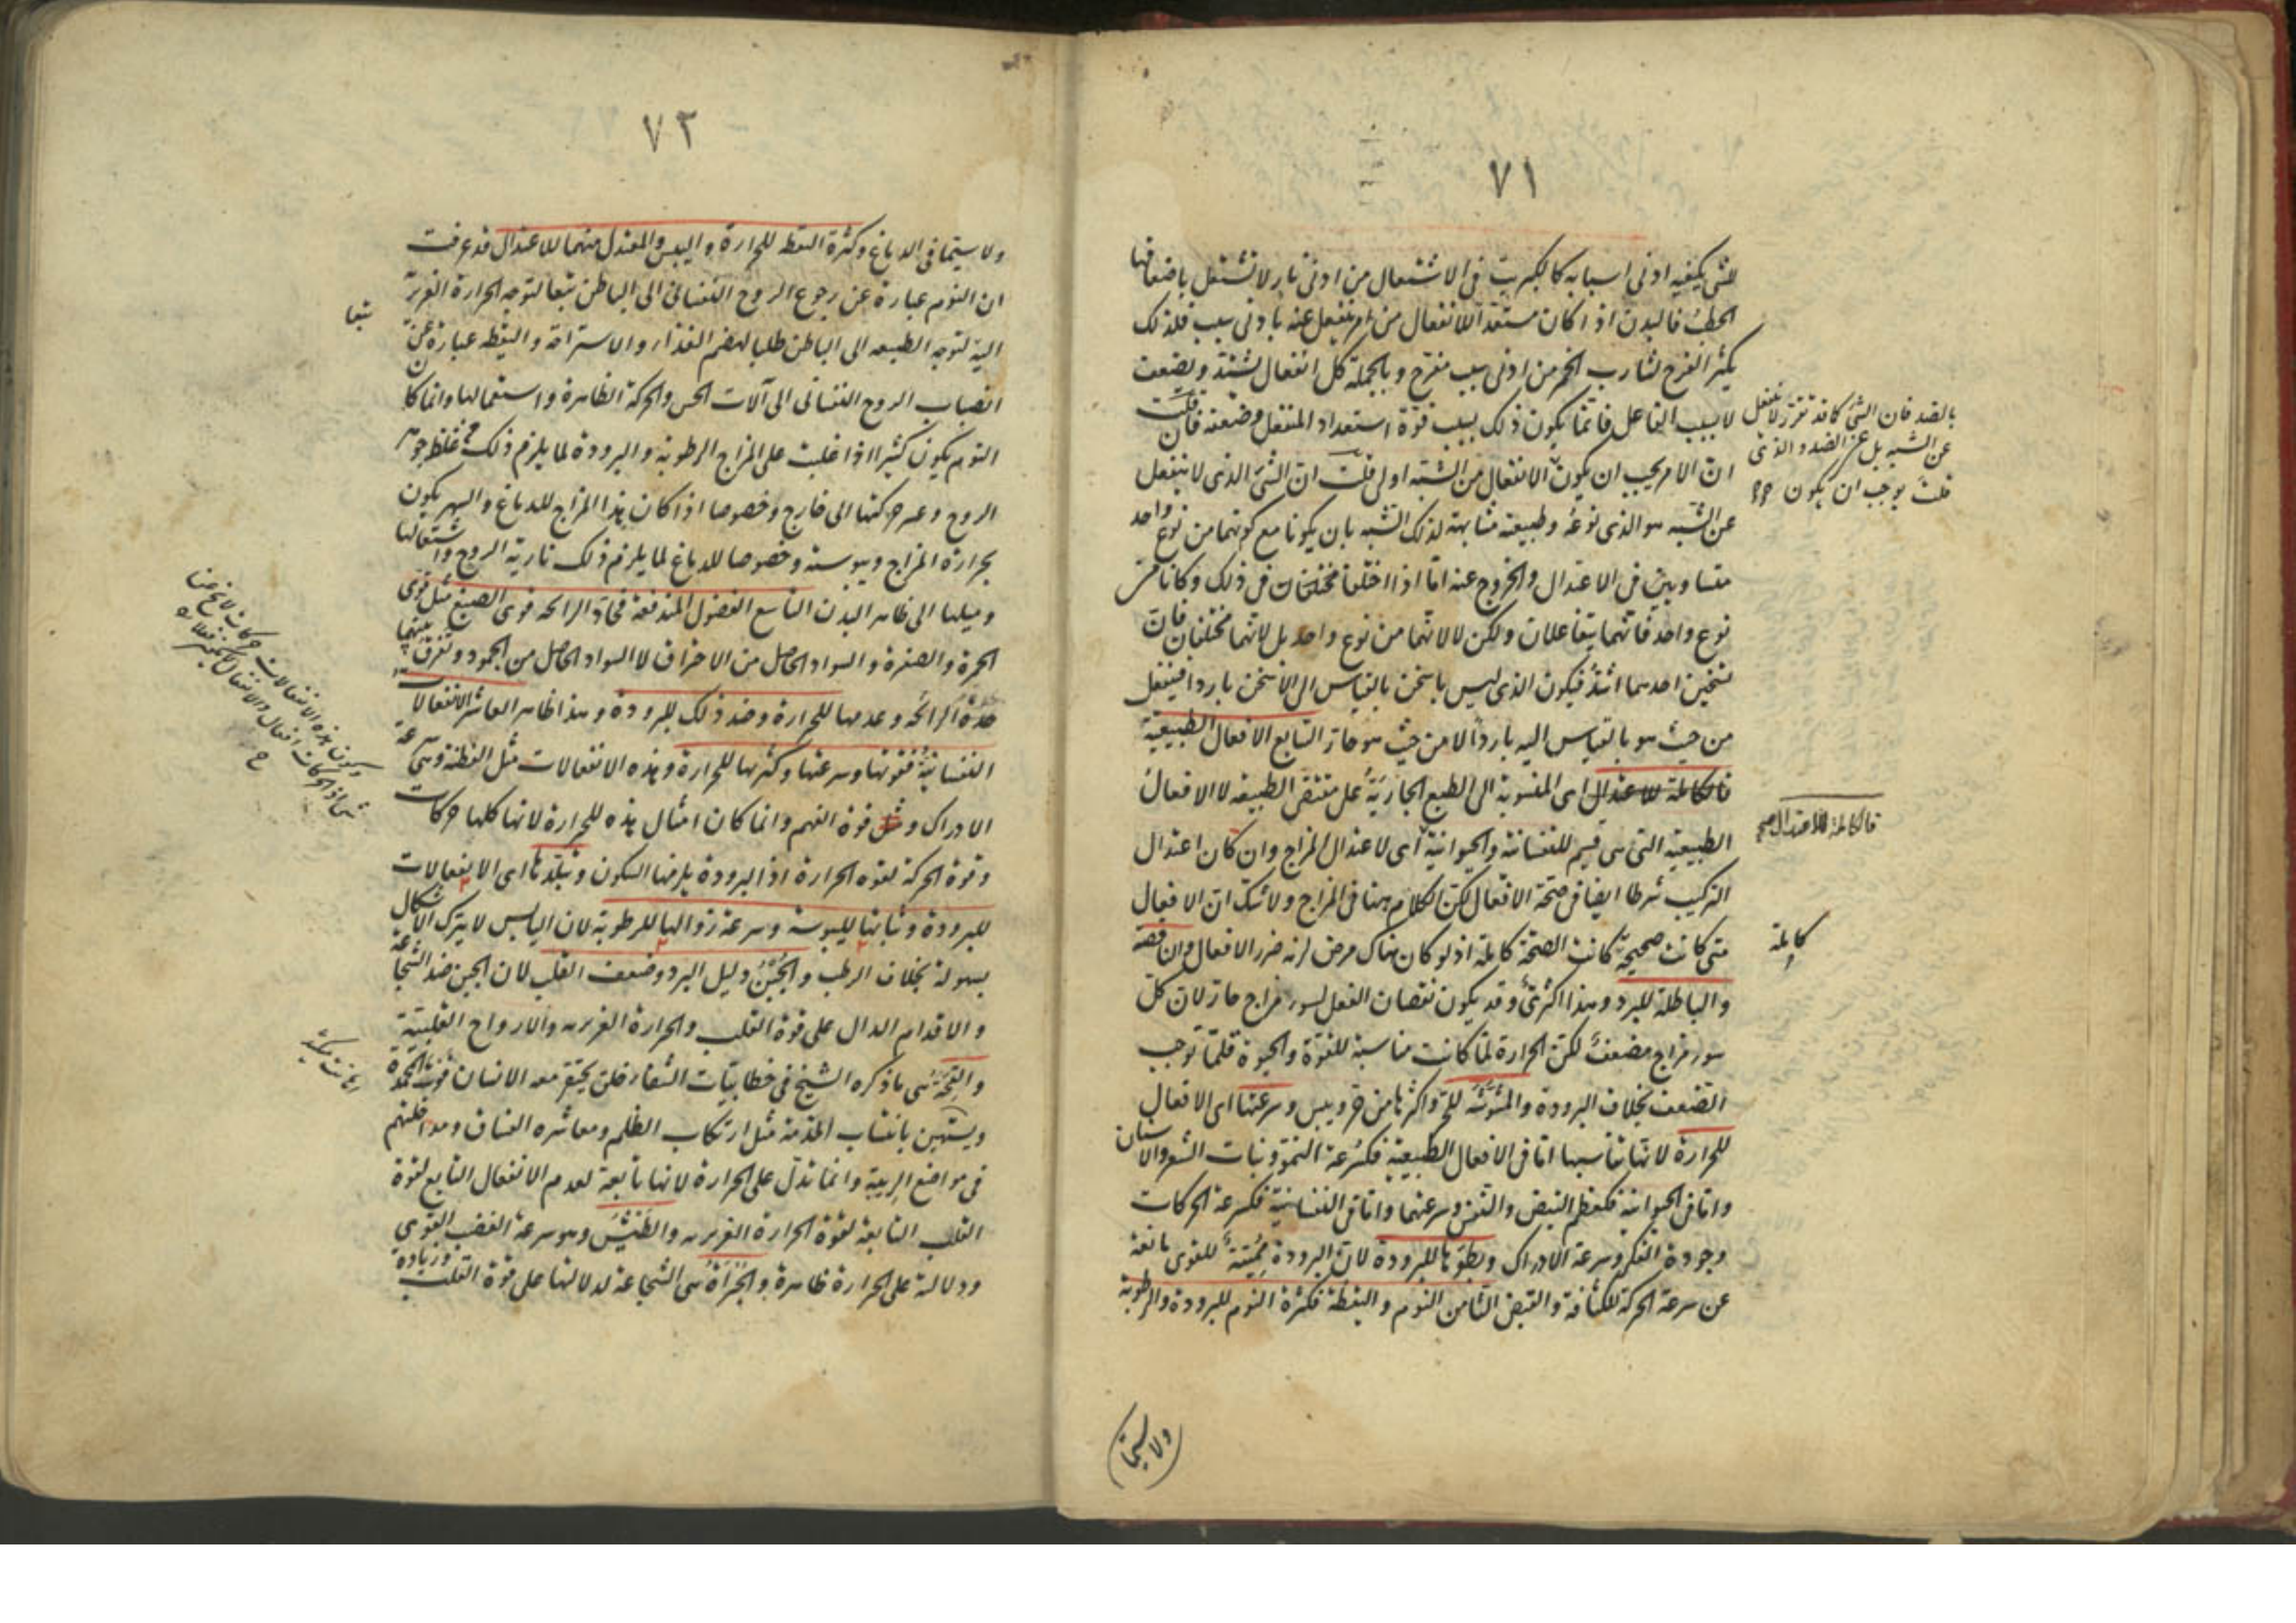 ٧١
للشئ يكفيه ادنى اسبابه كالكبريت فى الاشتعال من ادنى نار لا تشتعل باضعافها
الحطب فالبدن اذا كان مستعدا للانفعال من امر ينفعل عنه بادنى سبب فلذلك
يكثر الفرح لشارب الخمر من ادنى سبب مفرح وبالجملة كل انفعال يشتد ويضعف
لا بسبب الفاعل فانما يكون ذلك بسبب قوة استعداد المنفعل وضعفه فان قلت
ان الامر يجب ان يكون الانفعال من الشبه اولى قلت ان الشئ الذى لا ينفعل
عن الشبه هو الذى نوعه وطبيعته مشابهة لذلك الشبه بان يكونا مع كونهما من نوع واحد
متساويين فى الاعتدال والخروج عنه اما اذا اختلفا فى ذلك وكانا من
نوع واحد فانهما يتفاعلان ولكن لا لانهما من نوع واحد بل لانهما مختلفان فان
سخنين احدهما اشد فيكون الذى ليس باسخن بالقياس الى الاسخن باردا فينفعل
من حيث هو بالقياس اليه باردا لا من حيث هو حار السابع الافعال الطبيعية
فالكاملة للاعتدال اى المنسوبة الى الطبع الجارية على مقتضى الطبيعه لا الافعال
الطبيعية التى هى قسيم للنفسانية والحيوانية اى لاعتدال المزاج وان كان اعتدال
التركيب شرطا ايضا فى صحة الافعال لكن الكلام ههنا فى المزاج ولا شك ان الافعال
متى كانت صحيحة كانت الصحة كاملة اذ لو كان هناك مرض لزمه ضرر الافعال والناقصة
والباطلة للبرد وهذا اكثرى وقد يكون نقصان الفعل لسوء مزاج حار لان كل
سوء مزاج مضعف لكن الحرارة لما كانت مناسبة للقوة والحيوة قلما توجب
الضعف بخلاف البرودة والمشوشة للحر واكثرها من حر ويبس وسرعتها اى الافعال
للحرارة لانها تناسبها اما فى الافعال الطبيعية فكسرعة النمو ونبات الشعر والاسنان
واما فى الحيوانية فكعظم النبض والنفس وسرعتهما واما فى النفسانية فكسرعة الحركات
وجودة الفكر وسرعة الادراك وبطوها للبرودة لان البرودة مميتة للقوى مانعة
عن سرعة الحركة للكثافة والقبض الثامن النوم واليقظة فكثرة النوم للبرودة والرطوبة
بالضد فان الشئ كما قد تقرر لا ينفعل
عن الشبه بل عن الضد والذى
قلت يوجب ان يكون
فالكاملة للاعتدال صح
كاملة
ولا سيما
٧٢
ولا سيما فى الدماغ وكثرة اليقظه للحرارة واليبس والمعتدل منهما للاعتدال قد عرفت
ان النوم عبارة عن رجوع الروح النفسانى الى الباطن تبعا لتوجه الحرارة الغريزية
اليه لتوجه الطبيعه الى الباطن طلبا لهضم الغذاء والاستراحة واليقظه عبارة عن
انصباب الروح النفسانى الى آلات الحس والحركة الظاهرة واستعمالها وانما كان
النوم يكون كثيرا اذا غلبت على المزاج الرطوبة والبرودة لما يلزم ذلك من غلظ جوهر
الروح وعسر حركتها الى خارج وخصوصا اذا كان هذا المزاج للدماغ والسهر يكون
بحرارة المزاج ويبوسته وخصوصا للدماغ لما يلزم ذلك نارية الروح واشتعالها
وميلها الى ظاهر البدن التاسع الفضول المندفعة فحاد الرائحه قوى الصبغ مثل قوى
الحمرة والصفرة والسواد الحاصل من الاحتراق لا السواد الحاصل من الجمود وتفرق بينهما
حدة الرائحة وعدمها للحرارة وضد ذلك للبرودة وهذا ظاهر العاشر الانفعالات
النفسانية فقوتها وسرعتها وكثرتها للحرارة وهذه الانفعالات مثل الفطنة وهى سرعة
الادراك و قوة الفهم وانما كان امثال هذه للحرارة لانها كلها حركات
وقوة الحركة لقوه الحرارة اذ البرودة يلزمها السكون وتبلدها اى الانفعالات
للبرودة وثباتها لليبوسة وسرعة زوالها للرطوبة لان اليابس لا يترك الاشكال
بسهولة بخلاف الرطب والجبن دليل البرد وضعف القلب لان الجبن ضد الشجاعة
والاقدام الدال على قوة القلب والحرارة الغريزيه والارواح القلبية
والقحة هى ما ذكره الشيخ فى خطابيات الشفاء خلق يحتقر معه الانسان فوت المحمدة
ويستهين بانتساب المذمة مثل ارتكاب الظلم ومعاشره الفساق ومداخلتهم
فى مواضع الريبة وانما تدل على الحرارة لانها تابعة لعدم الانفعال التابع لقوة
القلب التابعة لقوة الحرارة الغريزيه والطيش وهو سرعة الغضب القوى
ودلالته على الحرارة ظاهرة والجرأة هى الشجاعة لدلالتها على قوة القلب وزيادة
تبعا